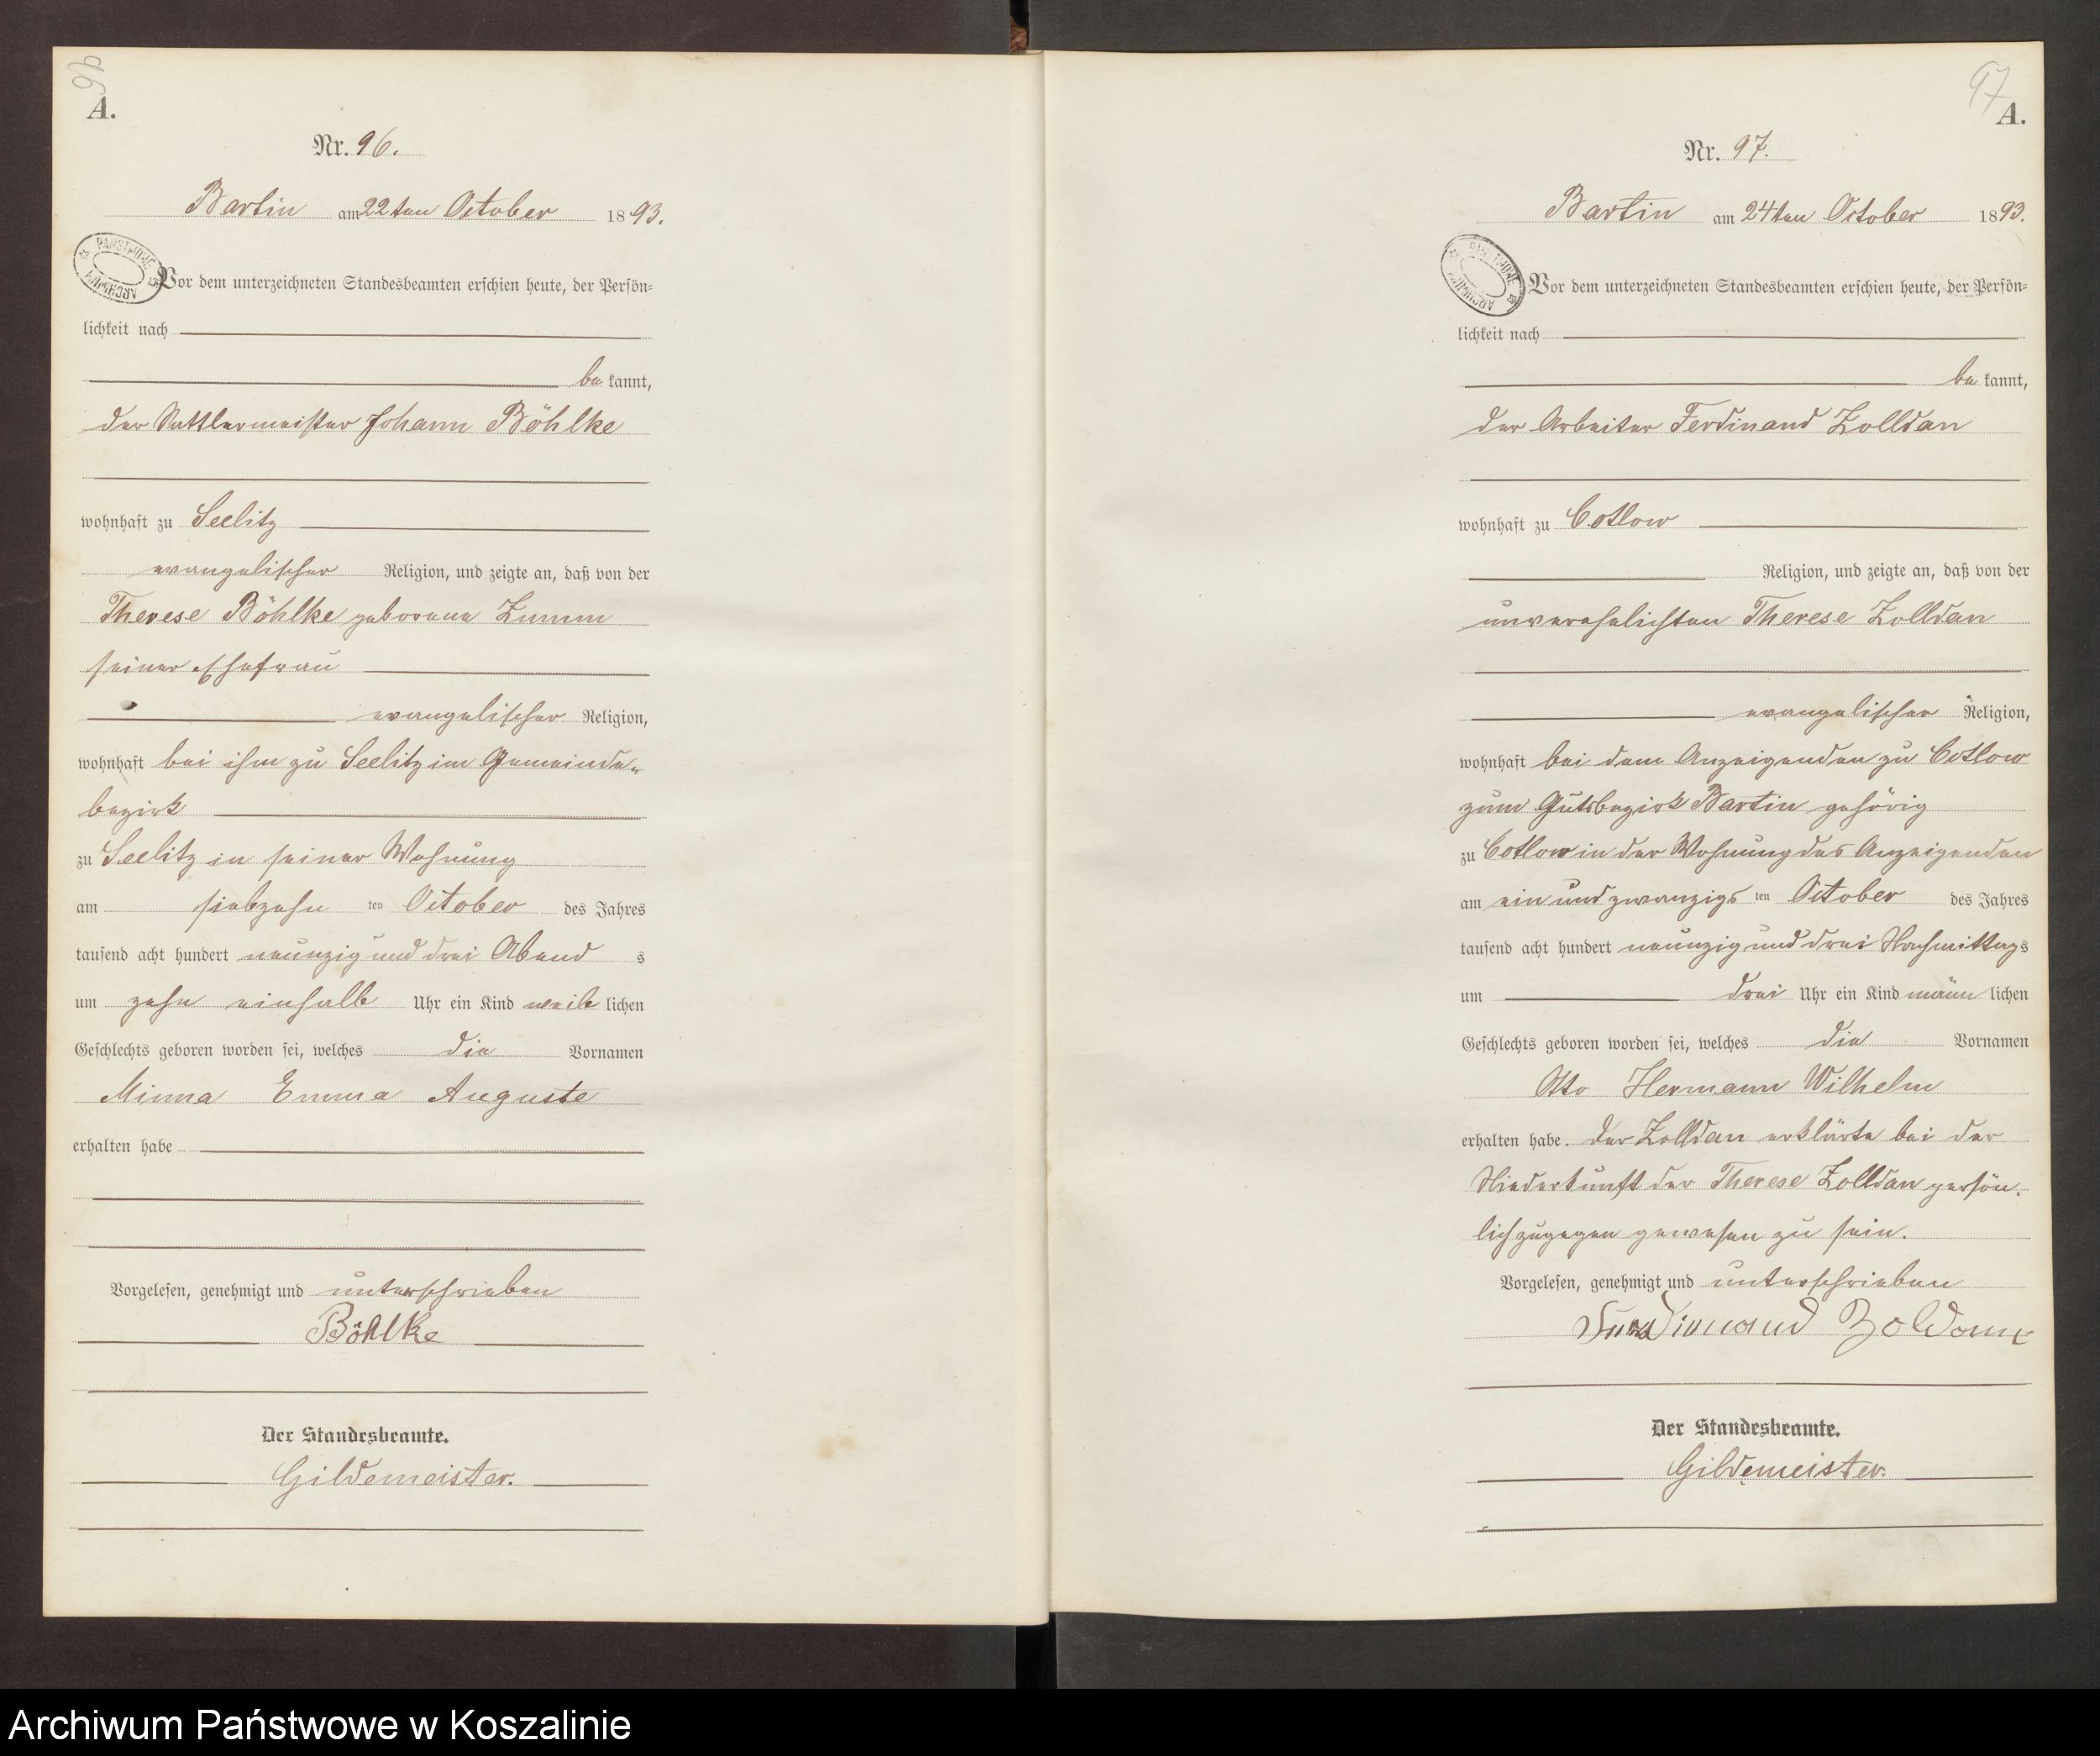 96
A.
Nr. 96.
Bartin am 22ten October 1893.
Vor dem unterzeichneten Standesbeamten erschien heute, der Persön=
lichkeit nach
bekannt,
der Sattlermeister Johann Böhlke
wohnhaft zu Seelitz
evangelischer Religion, und zeigte an, daß von der
Therese Böhlke geborene Zumm
seiner Ehefrau
evangelischer Religion,
wohnhaft bei ihm zu Seelitz im Gemeinde=
bezirk
zu Seelitz in seiner Wohnung
am siebzehn ten October des Jahres
tausend acht hundert neunzig und drei Abend s
um zehn einhalb Uhr ein Kind weiblichen
Geschlechts geboren worden sei, welches die Vornamen
Minna Emma Auguste
erhalten habe
Vorgelesen, genehmigt und unterschrieben
Böhlke
Der Standesbeamte.
Gildemeister.
97
A.
Nr. 97.
Bartin am 24ten October 1893.
Vor dem unterzeichneten Standesbeamten erschien heute, der Persön=
lichkeit nach
bekannt,
der Arbeiter Ferdinand Zolldan
wohnhaft zu Cotlow
Religion, und zeigte an, daß von der
unverehelichten Therese Zolldan
evangelischer Religion,
wohnhaft bei dem Anzeigenden zu Cotlow
zum Gutsbezirk Bartin gehörig
zu Cotlow in der Wohnung des Anzeigenden
am ein und zwanzigs ten October des Jahres
tausend acht hundert neunzig und drei Nachmittags
um drei Uhr ein Kind männlichen
Geschlechts geboren worden sei, welches die Vornamen
Otto Hermann Wilhelm
erhalten habe. Der Zolldan erklärte bei der
Niederkunft der Therese Zolldan persön=
lich zugegen gewesen zu sein.
Vorgelesen, genehmigt und unterschrieben
Ferdinand Zoldann
Der Standesbeamte.
Gildemeister.
Archiwum Państwowe w Koszalinie